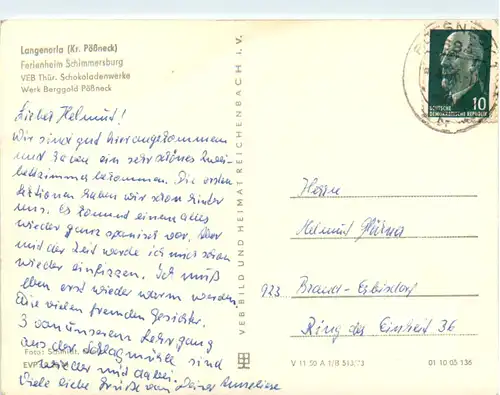 Langenorla (Kr. Pößneck)
Ferienheim Schimmersburg
VEB Thür. Schokoladenwerke
Werk Berggold Pößneck
Lieber Helmut!
Wir sind gut hier angekommen
und haben ein sehr schönes Zwei-
bettzimmer bekommen. Die ersten
Lektionen haben wir schon hinter
uns. Es kommt einem alles
wieder ganz spanisch vor. Aber
mit der Zeit werde ich mich schon
wieder einfitzen. Ich muß
eben erst wieder warm werden.
Die vielen fremden Gesichter.
3 von unserem Lehrgang
aus der sind
wieder mit dabei.
Viele liebe Grüße von Deiner Anneliese
Foto:
EVP
VEB BILD UND HEIMAT REICHENBACH i. V.
10
DEUTSCHE
DEMOKRATISCHE REPUBLIK
Herrn
Helmut
923 Brand-Erbisdorf
Ring der Einheit 36
V 11 50 A 1/B 513/73
01 10 05 136